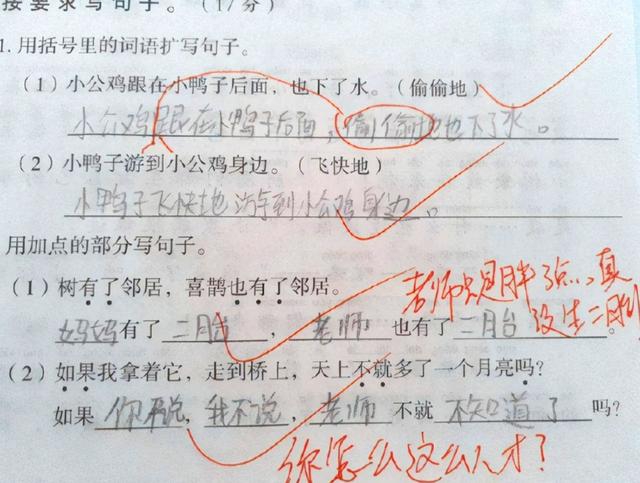 按要求写句子。(17分)
1. 用括号里的词语扩写句子。
(1)小公鸡跟在小鸭子后面,也下了水。(偷偷地)
小公鸡跟在小鸭子后面,偷偷地也下了水。
(2)小鸭子游到小公鸡身边。(飞快地)
小鸭子飞快地游到小公鸡身边。
用加点的部分写句子。
(1)树有了邻居,喜鹊也有了邻居。
老师只是胖了点,真没生二胎
妈妈有了二月台,老师也有了二月台。
(2)如果我拿着它,走到桥上,天上不就多了一个月亮吗?
如果你不说,我不说,老师不就不知道了吗?
你怎么这么人才?